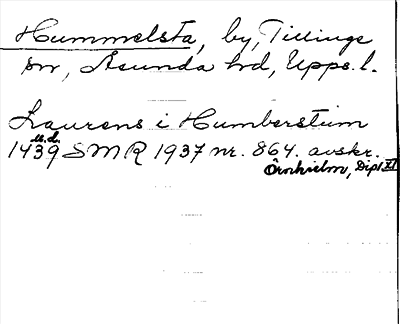 Hummelsta, by, Tillinge
sn, Åsunda hd, Upps. l.
Laurens i Humberstum
u.d.
1439 SMR 1937 nr. 864. avskr.
Örnhielm, Dipl. XI